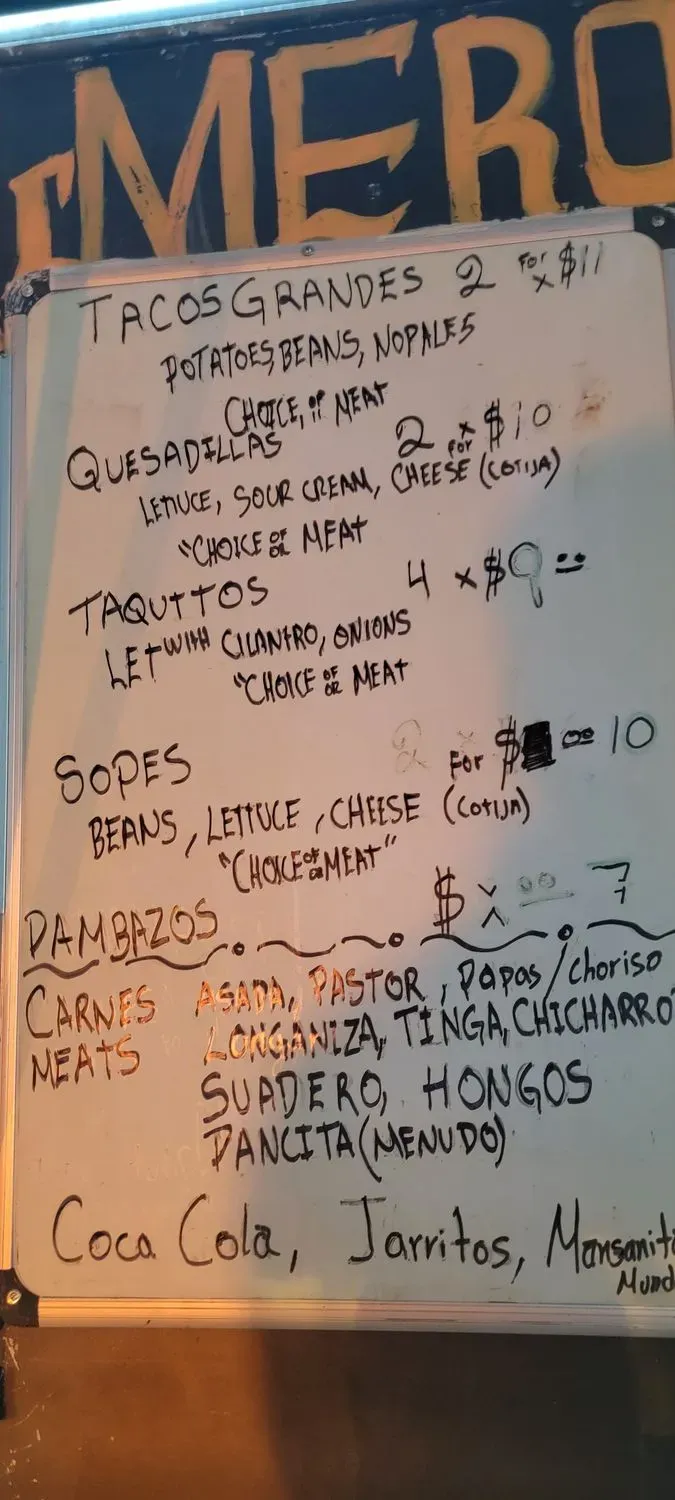 MERO
TACOS GRANDES 2 FOR x $11
POTATOES, BEANS, NOPALES
CHOICE, OF MEAT
QUESADILLAS 2 x FOR $10
LETTUCE, SOUR CREAM, CHEESE (COTIJA)
"CHOICE OF MEAT
TAQUITOS 4 x $9
LET WITH CILANTRO, ONIONS
"CHOICE OF MEAT
SOPES 2 x FOR $ 10
BEANS, LETTUCE, CHEESE (COTIJA)
"CHOICE OF MEAT"
PAMBAZOS $ x 7
CARNES ASADA, PASTOR, Papas/choriso
MEATS LONGANIZA, TINGA, CHICHARRO
SUADERO, HONGOS
PANCITA (MENUDO)
Coca Cola, Jarritos, Mansanita
Mund